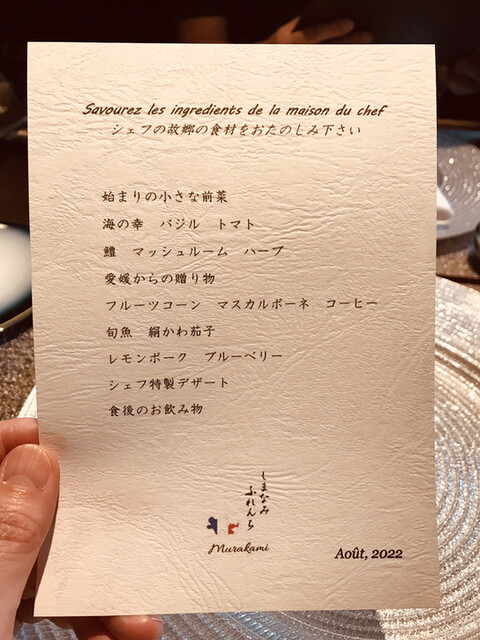 Savourez les ingredients de la maison du chef
シェフの故郷の食材をおたのしみ下さい
始まりの小さな前菜
海の幸　バジル　トマト
鱧　マッシュルーム　ハーブ
愛媛からの贈り物
フルーツコーン　マスカルポーネ　コーヒー
旬魚　絹かわ茄子
レモンポーク　ブルーベリー
シェフ特製デザート
食後のお飲み物
しまなみ
ふれんち
Murakami
Août, 2022